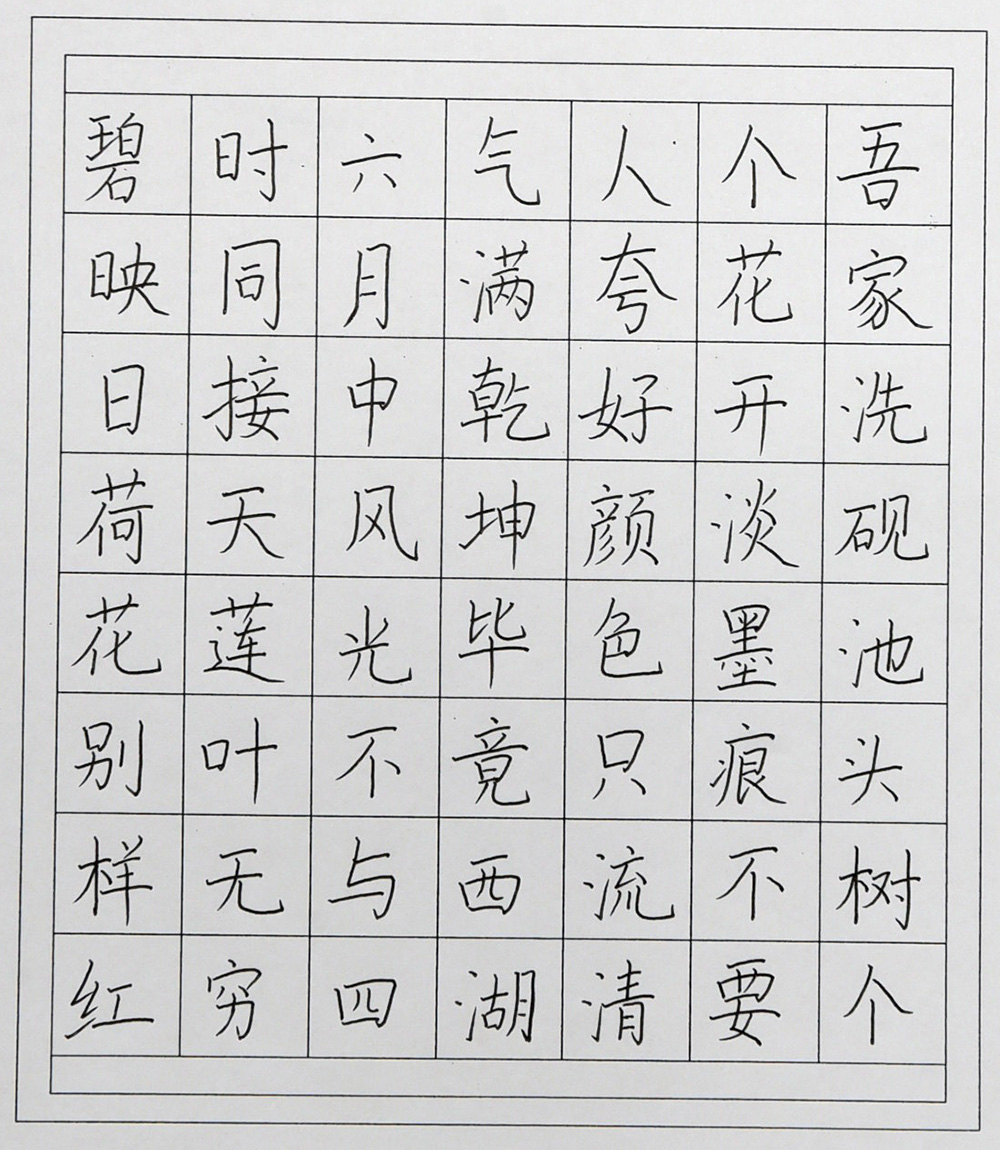 吾家洗砚池头树个
个花开淡墨痕不要
人夸好颜色只流清
气满乾坤毕竟西湖
六月中风光不与四
时同接天莲叶无穷
碧映日荷花别样红